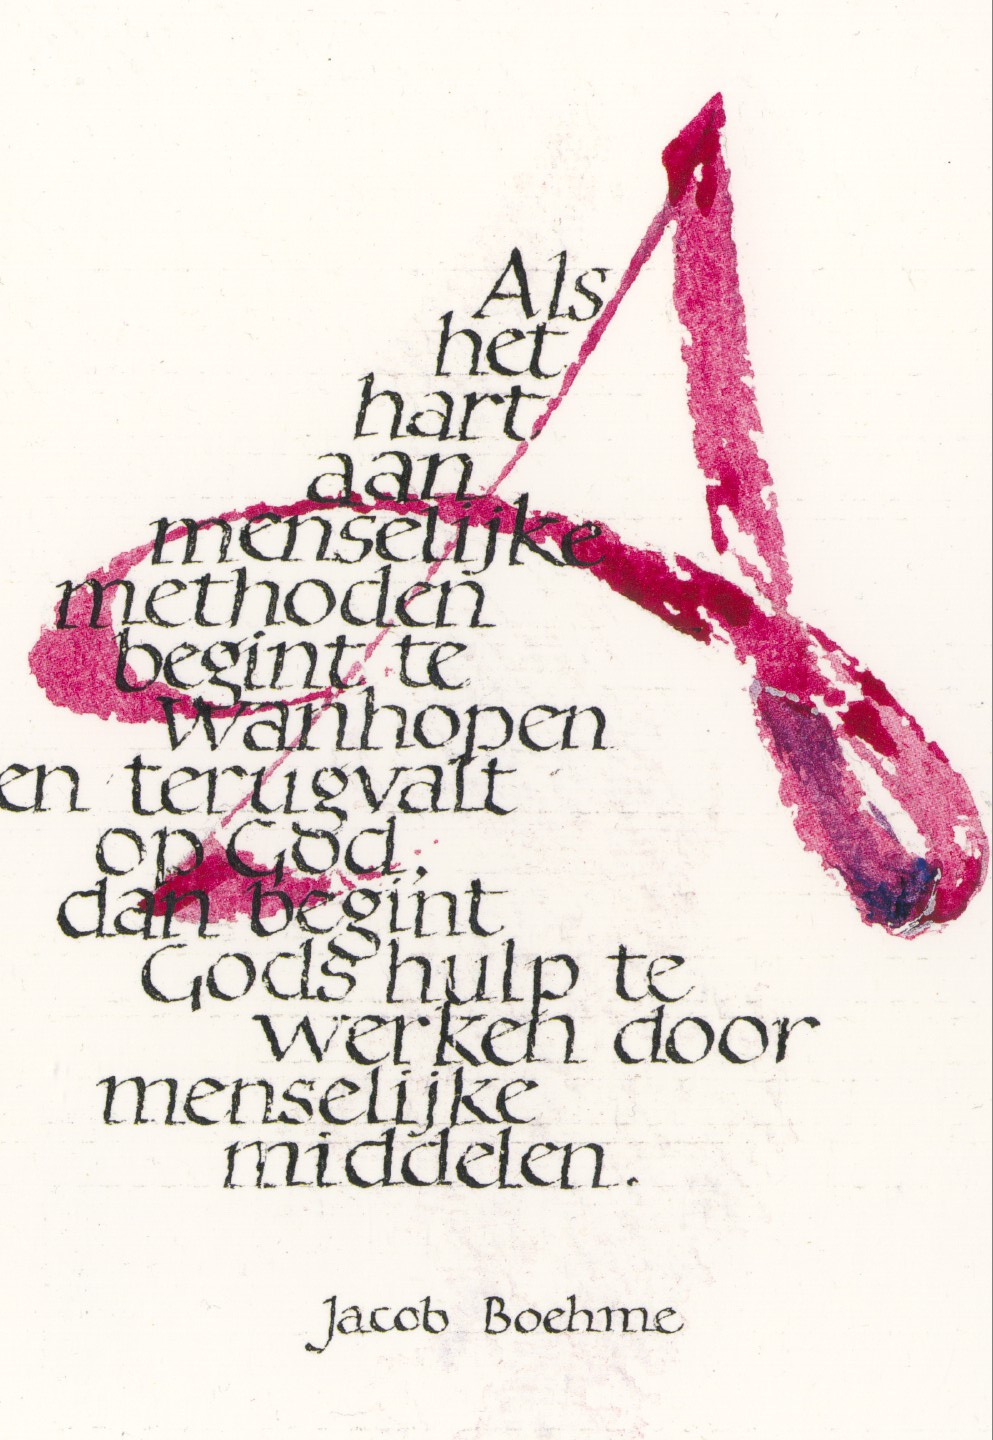 Als
het
hart
aan
menselijke
methoden
begint te
wanhopen
en terugvalt
op God,
dan begint
Gods hulp te
werken door
menselijke
middelen.
Jacob Boehme